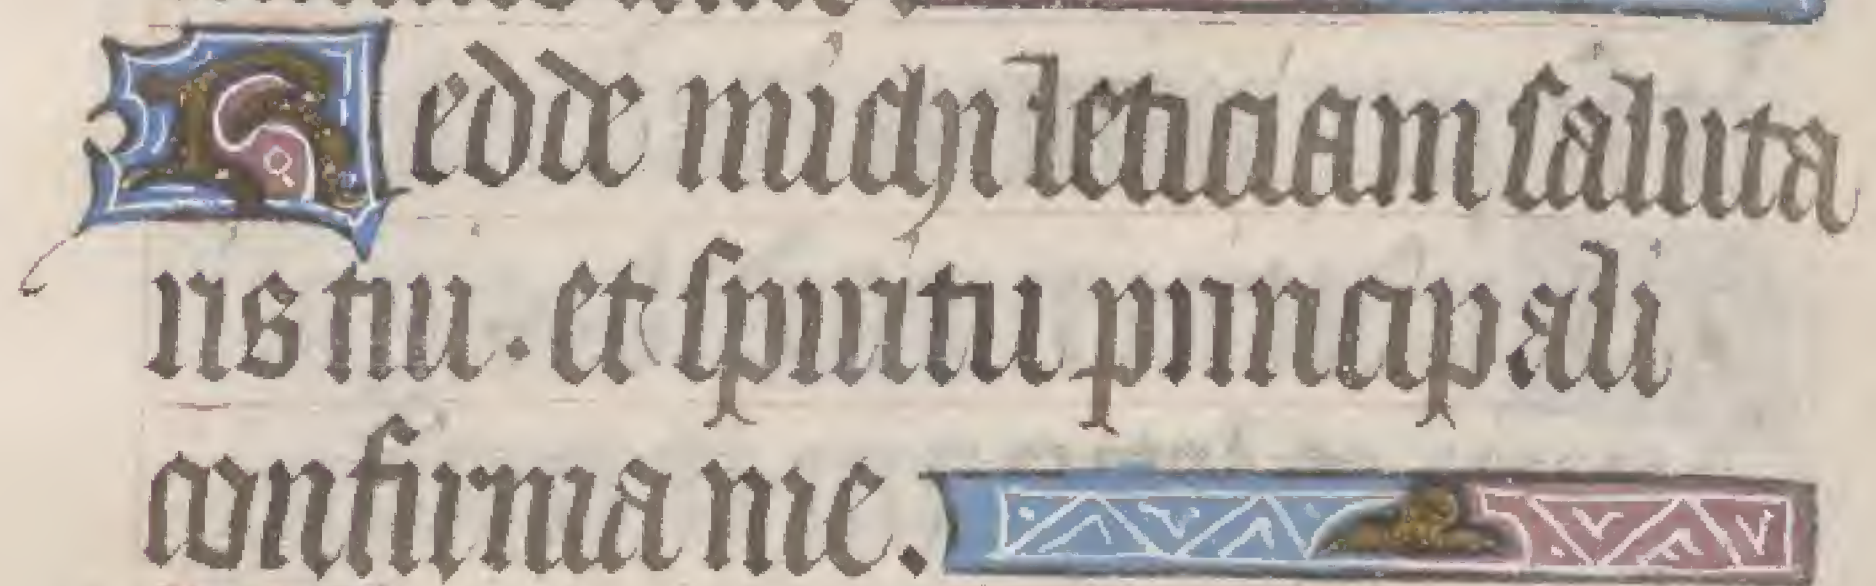 Redde michi leticiam saluta
ris tui · et spiritu principali
confirma me.